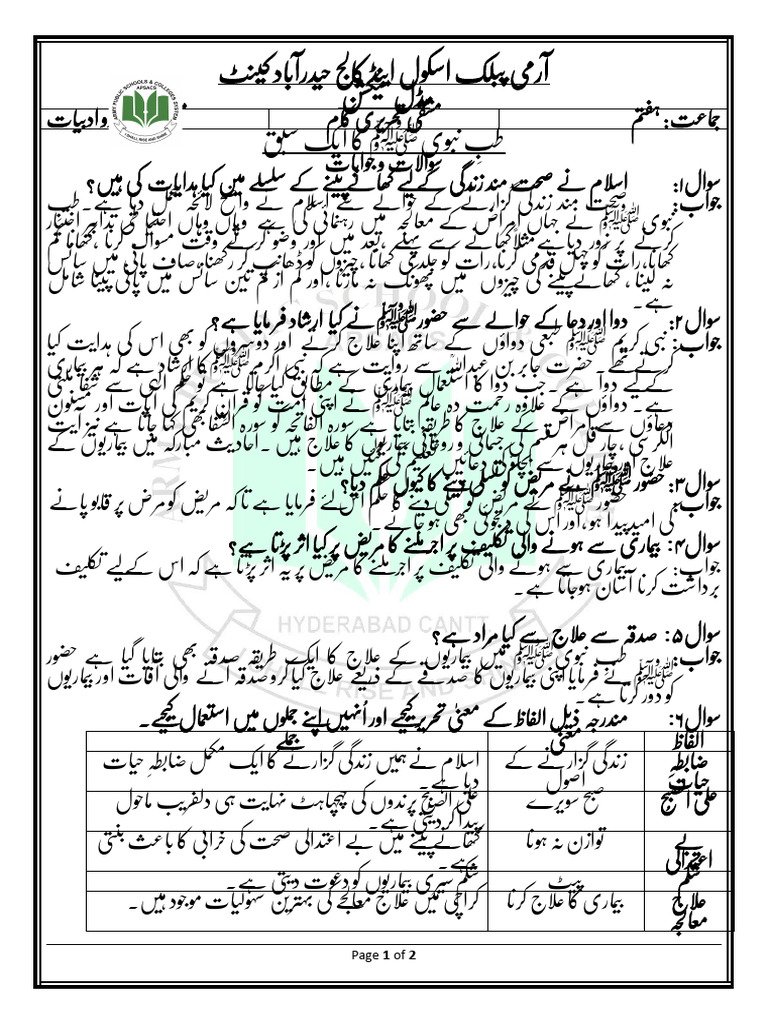 آرمی پبلک اسکول اینڈ کالج حیدرآباد کینٹ
مڈل سیکشن
جماعت: ہفتم
مشقی تحریری کام
وادبیات
طبِ نبوی ﷺ کا ایک سبق
سوالات و جوابات
سوال۱: اسلام نے صحت مند زندگی کے لیے کھانے پینے کے سلسلے میں کیا ہدایات کی ہیں؟
جواب: صحت مند زندگی گزارنے کے حوالے سے اسلام نے واضح لائحہ عمل دیا ہے۔ طب
نبوی ﷺ نے جہاں امراض کے معالجہ میں رہنمائی کی ہے وہاں وہاں احتیاطی تدابیر اختیار
کرنے پر زور دیا ہے مثلاً کھانے سے پہلے ،بعد میں اور وضو کرتے وقت مسواک کرنا ،کھانا کم
کھانا،رات کو چہل قدمی کرنا،رات کو جلدی کھانا،چیزوں کو ڈھانپ کر رکھنا،صاف پانی میں سانس
نہ لینا ،کھانے پینے کی چیزوں میں پھونک نہ مارنا،اور کم از کم تین سانس میں پانی پینا شامل
ہے۔
سوال۲: دوا اور دعا کے حوالے سے حضورﷺ نے کیا ارشاد فرمایا ہے؟
جواب: نبی کریم ﷺ طبعی دواؤں کے ساتھ اپنا علاج کرتے اور دوسروں کو بھی اس کی ہدایت کیا
کرتے تھے۔ حضرت جابر بن عبداللہؓ سے روایت ہے کہ نبی اکرمﷺ کا ارشاد ہے کہ ہر بیماری
کے لیے دوا ہے۔ جب دوا کا استعمال بیماری کے مطابق کیا جاتا ہے تو حکم الٰہی سے شفا ملتی
ہے۔ دواؤں کے علاوہ رحمت دہ عالم ﷺ نے اپنی امت کو قرآن کریم کی آیات اور مسنون
دعاؤں سے امراض کے علاج کا طریقہ بتایا ہے سورہ الفاتحہ کو سورہ الشفا بھی کہا جاتا ہے نیز آیت
الکرسی ،چار قل ہر قسم کی جسمانی و روحانی بیماریوں کا علاج ہیں۔احادیث مبارکہ میں بیماریوں کے
علاج اور بیماریوں سے بچنے کی دعائیں تعلیم کی گئیں ہیں۔
سوال۳: حضورﷺ نے مریض کو تسلی دینے کا کیوں حکم دیا؟
جواب: حضور ﷺ نے مریض کو تسلی دینے کا حکم اس لئے فرمایا ہے تاکہ مریض کو مرض پر قابو پانے
کی امید پیدا ہو،اور اس کی دلجوئی بھی ہو جائے۔
سوال۴: بیماری سے ہونے والی تکلیف پر اجر ملنے کا مریض پر کیا اثر پڑتا ہے؟
جواب: بیماری سے ہونے والی تکلیف پر اجر ملنے کا مریض پر یہ اثر پڑتا ہے کہ اس کے لیے تکلیف
برداشت کرنا آسان ہو جاتا ہے۔
سوال۵: صدقہ سے علاج سے کیا مراد ہے؟
جواب: طب نبویﷺ میں بیماریوں کے علاج کا ایک طریقہ صدقہ بھی بتایا گیا ہے حضور
ﷺ نے فرمایا اپنی بیماریوں کا صدقے کے ذریعے علاج کیا کرو صدقہ آنے والی آفات اور بیماریوں
کو دور کرتا ہے۔
سوال۶: مندرجہ ذیل الفاظ کے معنی تحریر کیجیے اور اُنہیں اپنے جملوں میں استعمال کیجیے۔
الفاظ معنی جملے
ضابطہ حیات زندگی گزارنے کے اصول اسلام نے ہمیں زندگی گزارنے کا ایک مکمل ضابطہِ حیات دیا ہے۔
علی الصبح صبح سویرے علی الصبح پرندوں کی چہچہاہٹ نہایت ہی دلفریب ماحول پیدا کر دیتی ہے۔
بے اعتدالی توازن نہ ہونا کھانے پینے میں بے اعتدالی صحت کی خرابی کا باعث بنتی ہے۔
شکم پیٹ شکم سیری بیماریوں کو دعوت دیتی ہے۔
علاج معالجہ بیماری کا علاج کرنا کراچی میں علاج معالجے کی بہترین سہولیات موجود ہیں۔
ARMY PUBLIC SCHOOLS & COLLEGES SYSTEM
APSACS
I SHALL RISE AND SHINE
HYDERABAD CANTT
Page 1 of 2